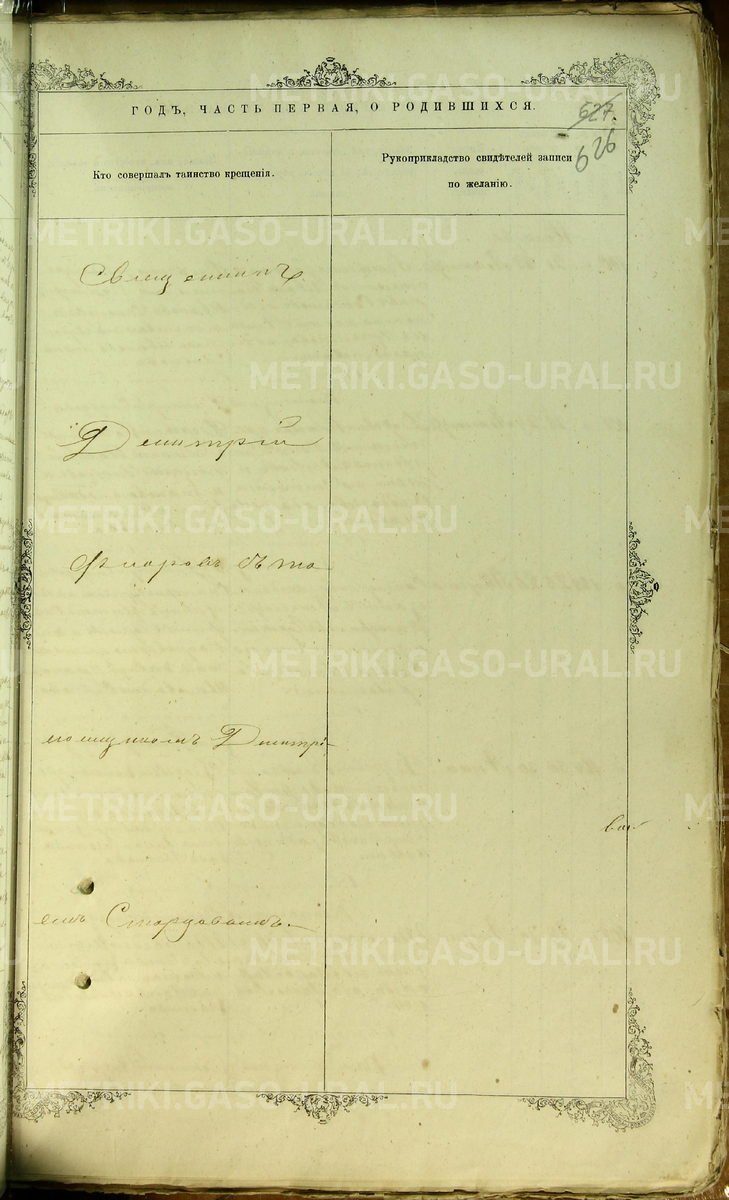 ГОДЪ, ЧАСТЬ ПЕРВАЯ, О РОДИВШИХСЯ.
627.
626
Кто совершалъ таинство крещенія.
Рукоприкладство свидѣтелей записи
по желанію.
Священникъ
Димитрій
съ по-
мощникомъ Дмитрі-
емъ
METRIKI.GASO-URAL.RU